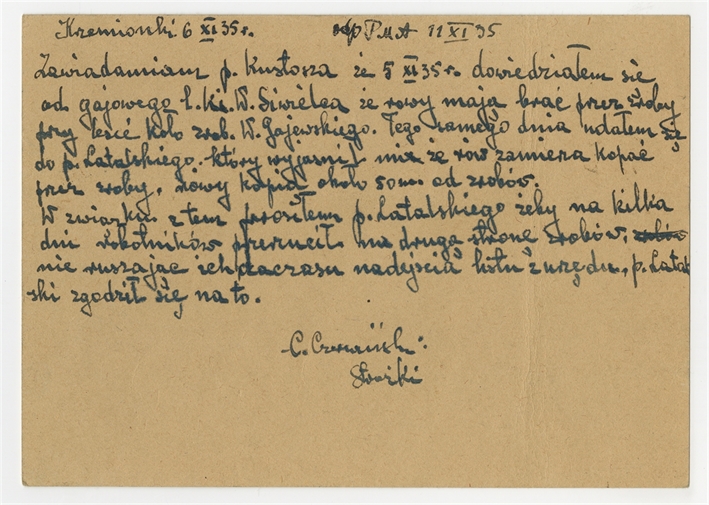 Krzemionki 6 XI 35 r. odp PMA 11 XI 35
Zawiadamiam p. Kustosza że 5 XI 35 r. dowiedziałem się
od gajowego W. Siwielca że rowy mają brać przez zroby
przy koło zrob. W. Gajewskiego. Tego samego dnia udałem się
do p. Łatalskiego który wyjaśnił że rów zamierza kopać
przez zroby, rowy kopią około 50 m. od zrobów.
W związku z tem prosiłem p. Łatalskiego żeby na kilka
dni robotników przerzucił na drugą stronę zrobów,
nie ruszając ich do czasu nadejścia listu z urzędu, p. Łatal
ski zgodził się na to.